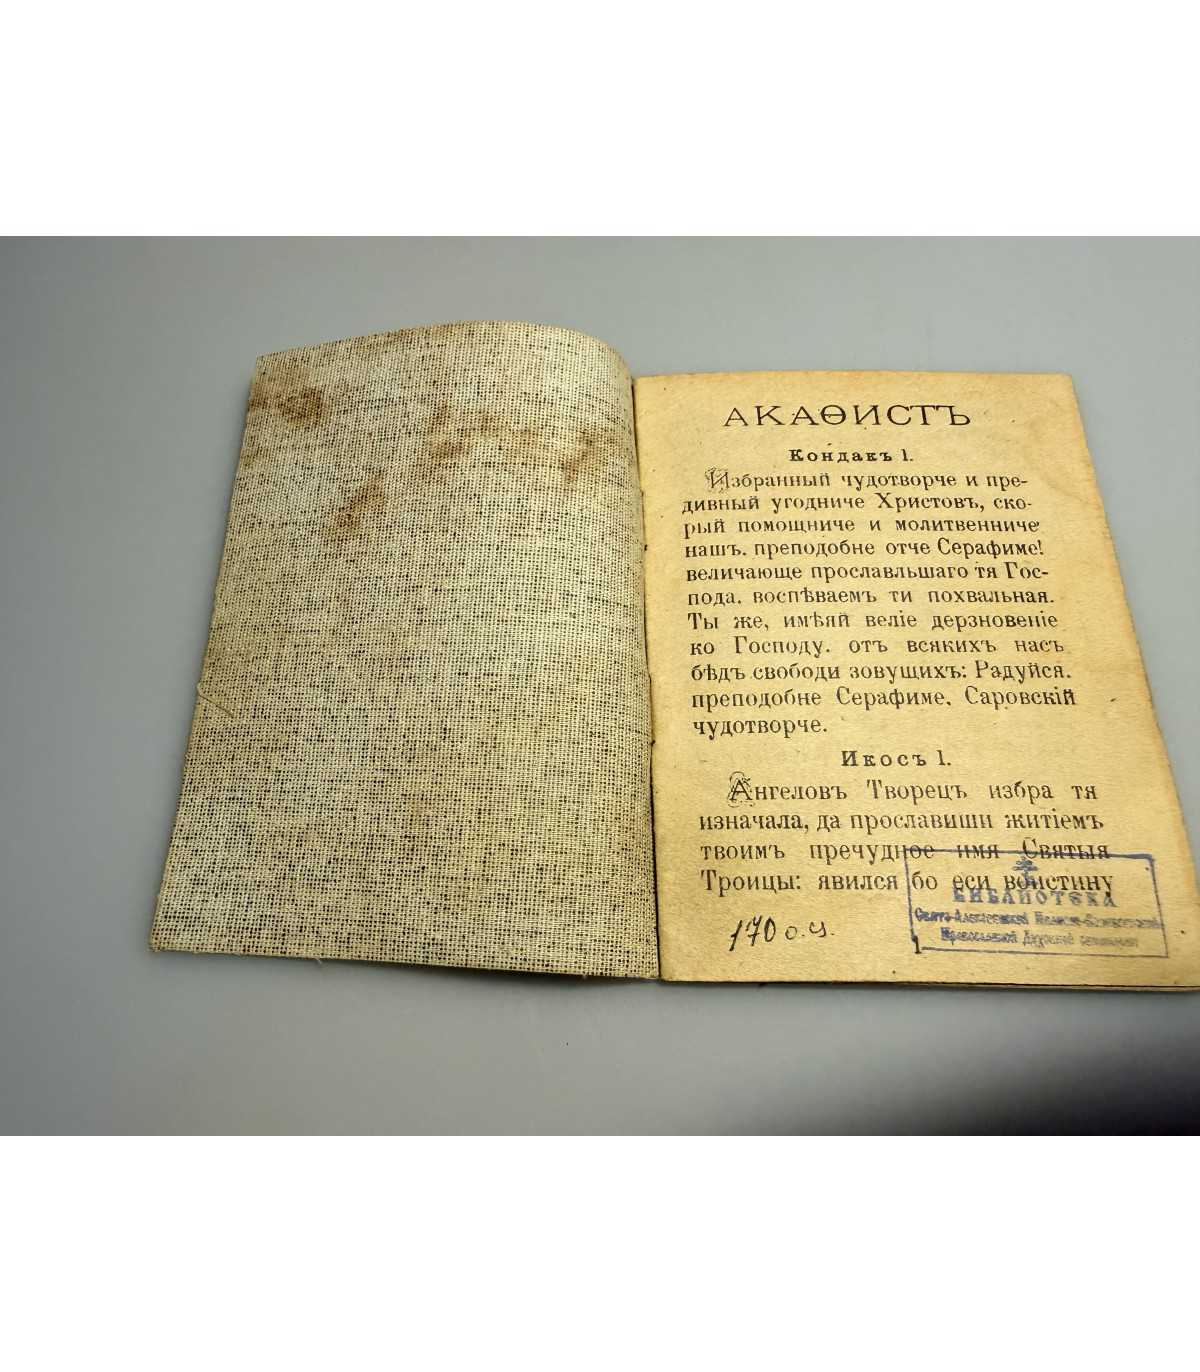 АКАѲИСТЪ
Кондакъ 1.
Избранный чудотворче и пре-
дивный угодниче Христовъ, ско-
рый помощниче и молитвенниче
нашъ. преподобне отче Серафиме!
величающе прославльшаго тя Гос-
пода. воспѣваемъ ти похвальная.
Ты же, имѣяй веліе дерзновеніе
ко Господу. отъ всякихъ насъ
бѣдъ свободи зовущихъ: Радуйся.
преподобне Серафиме. Саровскій
чудотворче.
Икосъ 1.
Ангеловъ Творецъ избра тя
изначала, да прославиши житіемъ
твоимъ пречудное имя Святыя
Троицы: явился бо еси воистину
БИБЛИОТЕКА
Свято-Алексеевской
Православной Духовной семинарии
170 о.ц.
1